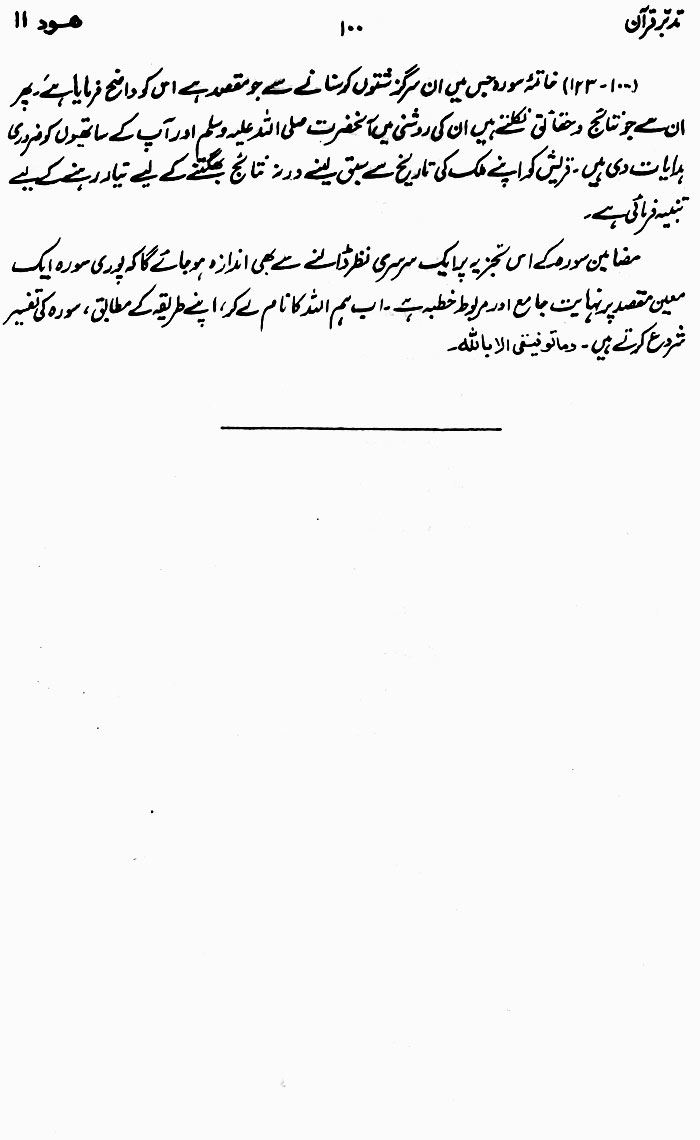 تدبر قرآن ۱۰۰ ھود ۱۱
(۱۰۰-۱۲۳) خاتمۂ سورہ جس میں ان سرگزشتوں کو سنانے سے جو مقصد ہے اس کو واضح فرمایا ہے، پھر
ان سے جو نتائج و حقائق نکلتے ہیں ان کی روشنی میں آنحضرت صلی اللہ علیہ وسلم اور آپ کے ساتھیوں کو ضروری
ہدایات دی ہیں۔ قریش کو اپنے ملک کی تاریخ سے سبق لینے ورنہ نتائج بھگتنے کے لیے تیار رہنے کے لیے
تنبیہ فرمائی ہے۔
مضامین سورہ کے اس تجزیہ پر ایک سرسری نظر ڈالنے سے بھی اندازہ ہو جائے گا کہ پوری سورہ ایک
معین مقصد پر نہایت جامع اور مربوط خطبہ ہے۔ اب ہم اللہ کا نام لے کر، اپنے طریقہ کے مطابق، سورہ کی تفسیر
شروع کرتے ہیں۔ وما توفیقی الا باللہ۔